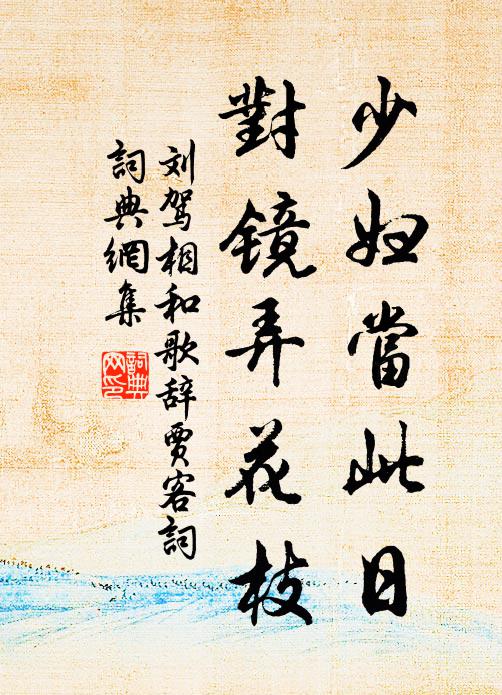 少妇當此日
對镜弄花枝
刘驾相和歌辞贾客詞
詞典網集
詞典网印